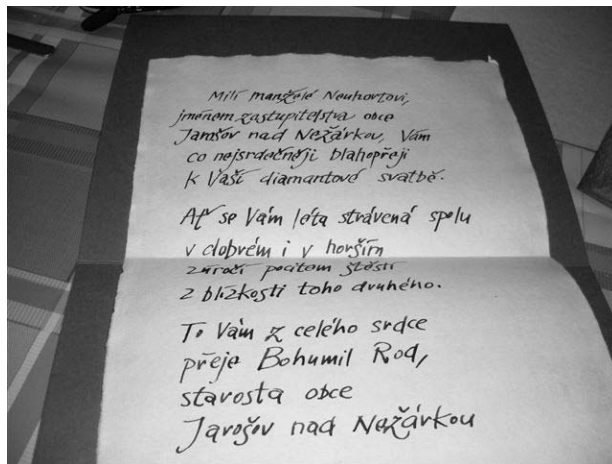 Milí manželé Neuhortovi,
jménem zastupitelstva obce
Jarošov nad Nežárkou, Vám
co nejsrdečněji blahopřeji
k Vaší diamantové svatbě.
Ať se Vám léta strávená spolu
v dobrém i v horším
zúročí pocitem štěstí
z blízkosti toho druhého.
To Vám z celého srdce
přeje Bohumil Rod,
starosta obce
Jarošov nad Nežárkou